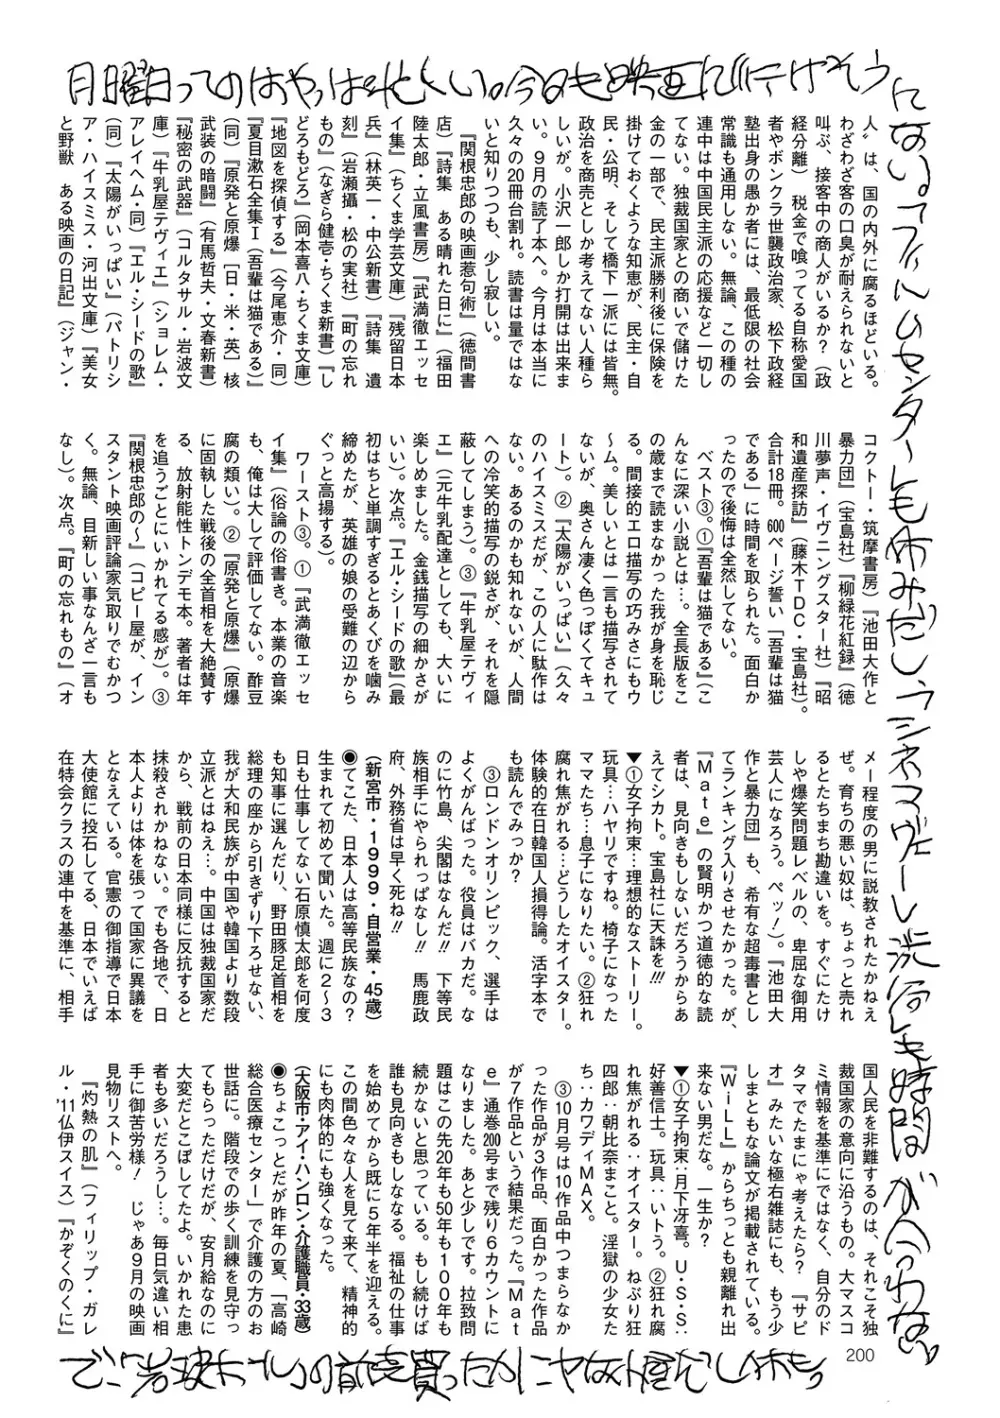 月曜日ってのはやっぱ忙しい。今日も映画に行けそう
にない。フィルムセンターも休みだし、シネマヴェーラ渋谷も時間が合わない。
人〟は、国の内外に腐るほどいる。
わざわざ客の口臭が耐えられないと
叫ぶ、接客中の商人がいるか？（政
経分離）　税金で喰ってる自称愛国
者やボンクラ世襲政治家、松下政経
塾出身の愚か者には、最低限の社会
常識も通用しない。無論、この種の
連中は中国民主派の応援など一切し
てない。独裁国家との商いで儲けた
金の一部で、民主派勝利後に保険を
掛けておくような知恵が、民主・自
民・公明、そして橋下一派には皆無。
政治を商売としか考えてない人種ら
しいが。小沢一郎しか打開は出来ま
い。９月の読了本へ。今月は本当に
久々の20冊台割れ。読書は量ではな
いと知りつつも、少し寂しい。
　『関根忠郎の映画惹句術』（徳間書
店）『詩集　ある晴れた日に』（福田
陸太郎・立風書房）『武満徹エッセ
イ集』（ちくま学芸文庫）『残留日本
兵』（林英一・中公新書）『詩集　遺
刻』（岩瀬攝・松の実社）『町の忘れ
もの』（なぎら健壱・ちくま新書）『し
どろもどろ』（岡本喜八・ちくま文庫）
『地図を探偵する』（今尾恵介・同）
『夏目漱石全集Ⅰ（吾輩は猫である）』
（同）『原発と原爆［日・米・英］核
武装の暗闘』（有馬哲夫・文春新書）
『秘密の武器』（コルタサル・岩波文
庫）『牛乳屋テヴィエ』（ショレム・
アレイヘム・同）『エル・シードの歌』
（同）『太陽がいっぱい』（パトリシ
ア・ハイスミス・河出文庫）『美女
と野獣　ある映画の日記』（ジャン・
コクトー・筑摩書房）『池田大作と
暴力団』（宝島社）『柳緑花紅録』（徳
川夢声・イヴニングスター社）『昭
和遺産探訪』（藤木ＴＤＣ・宝島社）。
合計18冊。600ページ誓い「吾輩は猫
である」に時間を取られた。面白か
ったので後悔は全然してない。
　ベスト③。①『吾輩は猫である』（こ
んなに深い小説とは…。全長版をこ
の歳まで読まなかった我が身を恥じ
る。間接的エロ描写の巧みさにもウ
ーム。美しいとは一言も描写されて
ないが、奥さん凄く色っぽくてキュ
ート）。②『太陽がいっぱい』（久々
のハイスミスだが、この人に駄作は
ない。あるのかも知れないが、人間
への冷笑的描写の鋭さが、それを隠
蔽してしまう）。③『牛乳屋テヴィ
エ』（元牛乳配達としても、大いに
楽しめました。金銭描写の細かさが
いい）。次点。『エル・シードの歌』（最
初はちと単調すぎるとあくびを噛み
締めたが、英雄の娘の受難の辺から
ぐっと高揚する）。
　ワースト③。①『武満徹エッセ
イ集』（俗論の俗書き。本業の音楽
も、俺は大して評価してない。酢豆
腐の類い）。②『原発と原爆』（原爆
に固執した戦後の全首相を大絶賛す
る、放射能性トンデモ本。著者は年
を追うごとにいかれてる感が）。③
『関根忠郎の〜』（コピー屋が、イン
スタント映画評論家気取りでむかつ
く。無論、目新しい事なんざ一言も
なし）。次点。『町の忘れもの』（オ
メー程度の男に説教されたかねえ
ぜ。育ちの悪い奴は、ちょっと売れ
るとたちまち勘違いを。すぐにたけ
しや爆笑問題レベルの、卑屈な御用
芸人になろう。ペッ！）。『池田大
作と暴力団』も、希有な超毒書とし
てランキング入りさせたかった。が、
『Ｍａｔｅ』の賢明かつ道徳的な読
者は、見向きもしないだろうからあ
えてシカト。宝島社に天誅を!!!
▼①女子拘束…理想的なストーリー。
玩具…ハヤリですね。椅子になった
ママたち…息子になりたい。②狂れ
腐れ焦がれる…どうしたオイスター。
体験的在日韓国人損得論。活字本で
も読んでみっか？
　③ロンドンオリンピック、選手は
よくがんばった。役員はバカだ。な
のに竹島、尖閣はなんだ!!　下等民
族相手にやられっぱなし!!　馬鹿政
府、外務省は早く死ね!!
（新宮市・１９９９・自営業・45歳）
◉てこた、日本人は高等民族なの？
生まれて初めて聞いた。週に２〜３
日も仕事してない石原慎太郎を何度
も知事に選んだり、野田豚足首相を
総理の座から引きずり下ろせない、
我が大和民族が中国や韓国より数段
立派とはねえ…。中国は独裁国家だ
から、戦前の日本同様に反抗すると
抹殺されかねない。でも各地で、日
本人よりは体を張って国家に異議を
となえている。官憲の御指導で日本
大使館に投石してる、日本でいえば
在特会クラスの連中を基準に、相手
国人民を非難するのは、それこそ独
裁国家の意向に沿うもの。大マスコ
ミ情報を基準にではなく、自分のド
タマでたまにゃ考えたら？　『サピ
オ』みたいな極右雑誌にも、もう少
しまともな論文が掲載されている。
『ＷｉＬＬ』からちっとも親離れ出
来ない男だな。一生か？
▼①女子拘束：月下冴喜。Ｕ・Ｓ・Ｓ：
好善信士。玩具：いトう。②狂れ腐
れ焦がれる：オイスター。ねぶり狂
四郎：朝比奈まこと。淫獄の少女た
ち：カワディＭＡＸ。
　③10月号は10作品中つまらなか
った作品が３作品、面白かった作品
が７作品という結果だった。『Ｍａｔ
ｅ』通巻200号まで残り６カウントに
なりました。あと少しです。拉致問
題はこの先20年も50年も１００年も
続かないと思っている。もし続けば
誰も見向きもしなくなる。福祉の仕事
を始めてから既に５年半を迎える。
この間色々な人を見て来て、精神的
にも肉体的にも強くなった。
（大阪市・アイ・ハンロン・介護職員・33歳）
◉ちょこっとだが昨年の夏、「高崎
総合医療センター」で介護の方のお
世話に。階段での歩く訓練を見守っ
てもらっただけだが、安月給なのに
大変だとこぼしてたよ。いかれた患
者も多いだろうし…。毎日気違い相
手に御苦労様！　じゃあ９月の映画
見物リストへ。
　『灼熱の肌』（フィリップ・ガレ
ル・’11仏伊スイス）『かぞくのくに』
200